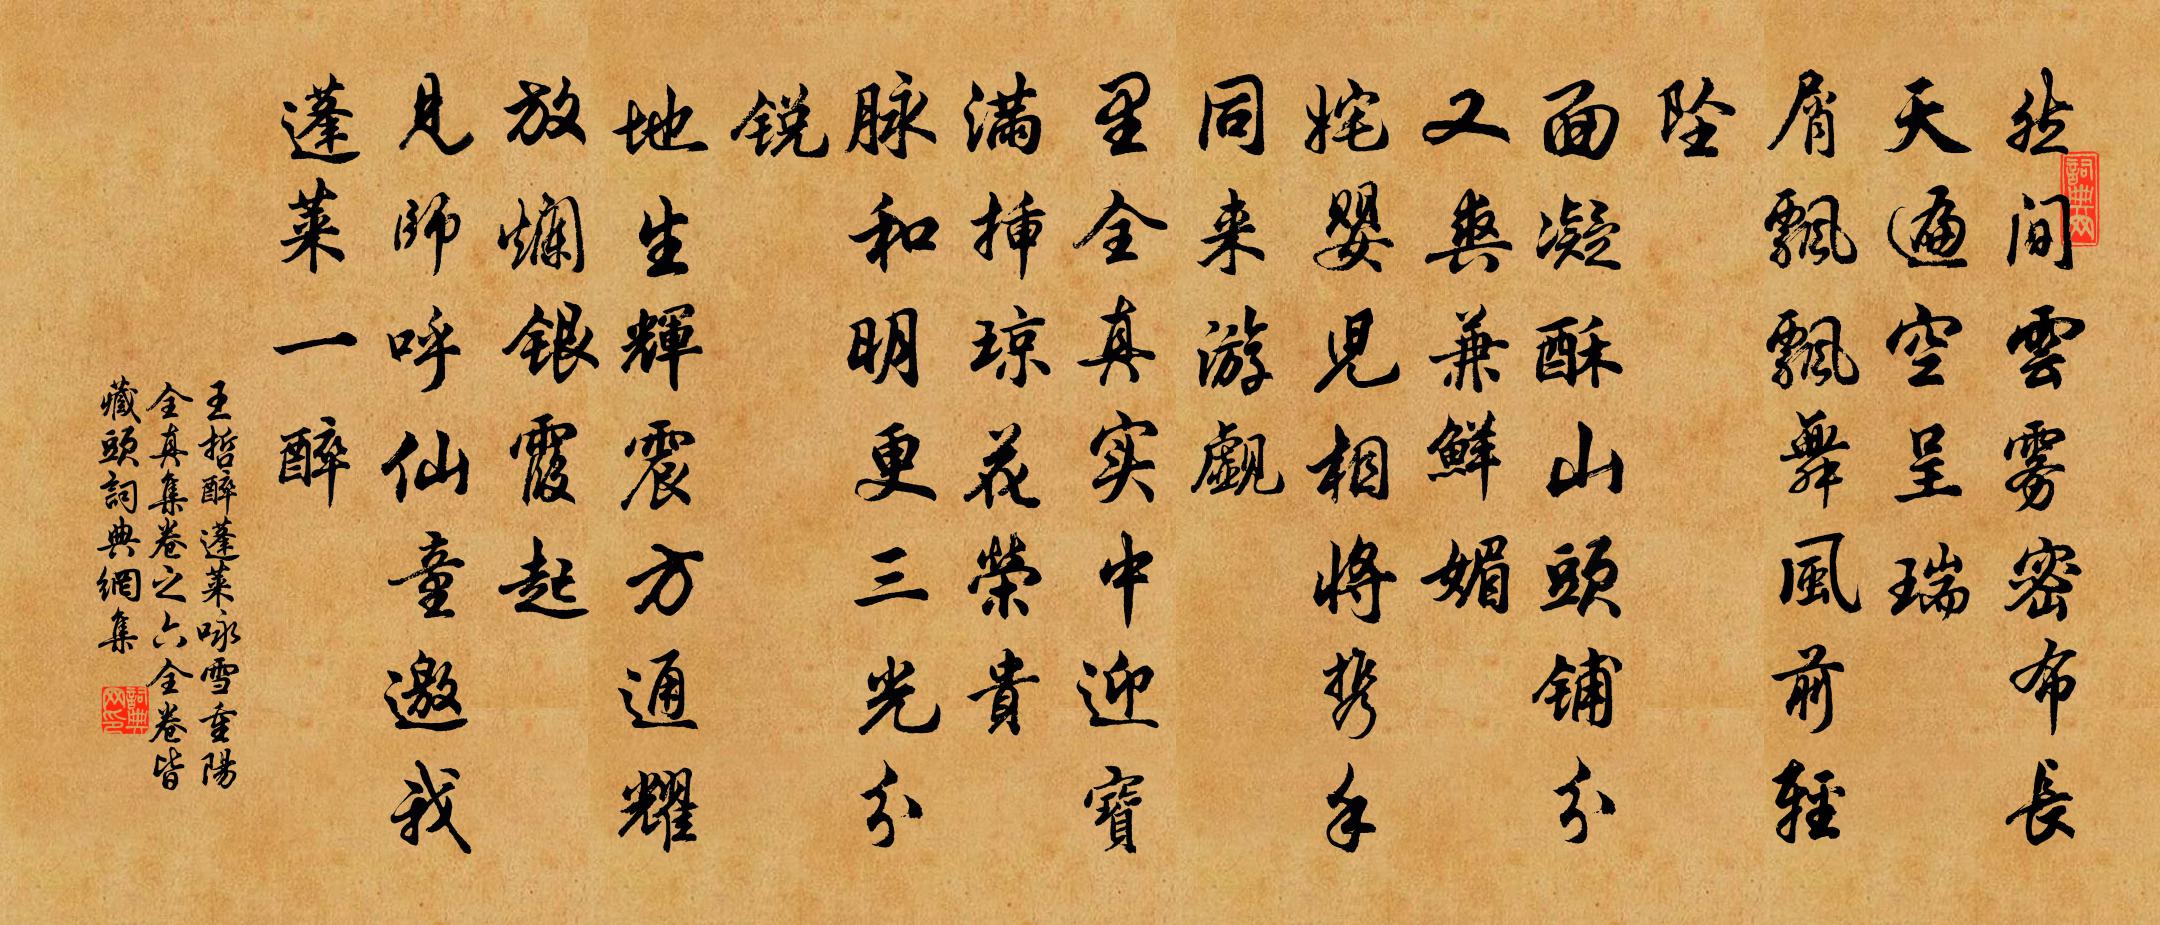 然间雲雾密布長
天遍空呈瑞
屑飄飄舞風前輕
坠
面凝酥山頭铺分
又爽兼鮮媚
姹嬰児相將携手
同来游觑
里全真实中迎寶
满插琼花榮貴
脉和明更三光分
锐
地生輝震方通耀
放爛银霞起
見師呼仙童邀我
蓬莱一醉
王哲醉蓬莱咏雪重陽
全真集卷之六全卷皆
藏頭詞典網集